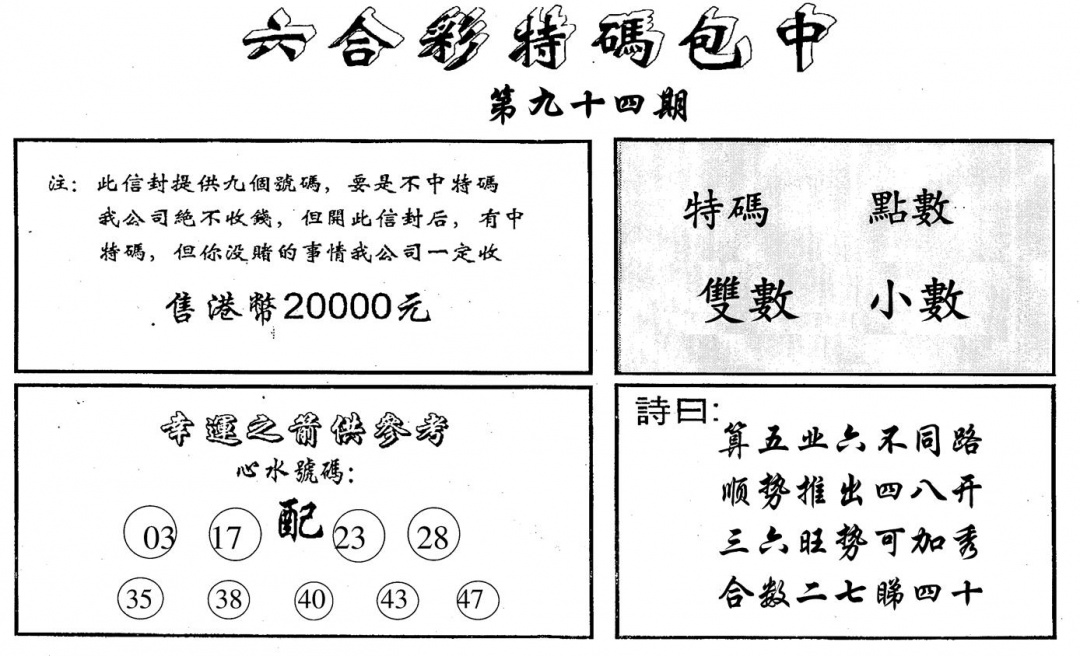 六合彩特碼包中
第九十四期
注：此信封提供九個號碼，要是不中特碼
我公司絕不收錢，但開此信封后，有中
特碼，但你没賭的事情我公司一定收
售港幣20000元
特碼 點數
雙數 小數
幸運之箭供參考
心水號碼：
配
03 17 23 28
35 38 40 43 47
詩曰：
算五业六不同路
顺势推出四八开
三六旺势可加秀
合数二七睇四十